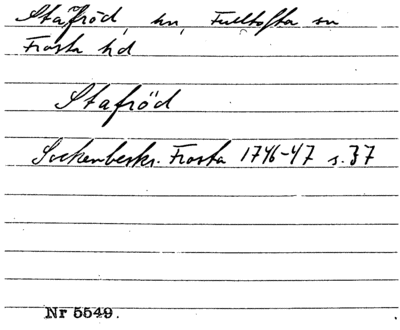 Stafröd, hn, Fulltofta sn
Frosta hd
Stafröd
Sockenbeskr. Frosta 1746-47 s. 37
Nr 5549.